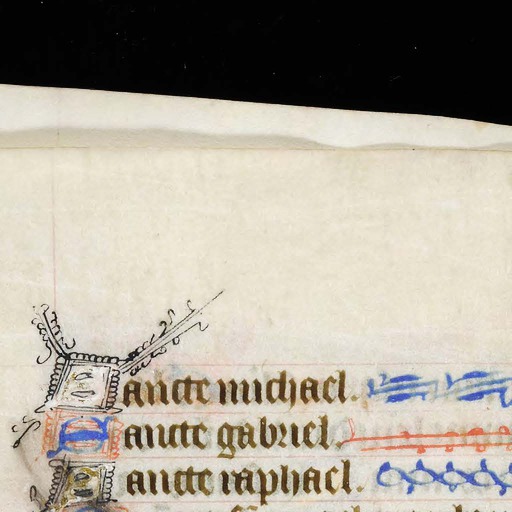 Sancte michael.
Sancte gabriel.
Sancte raphael.